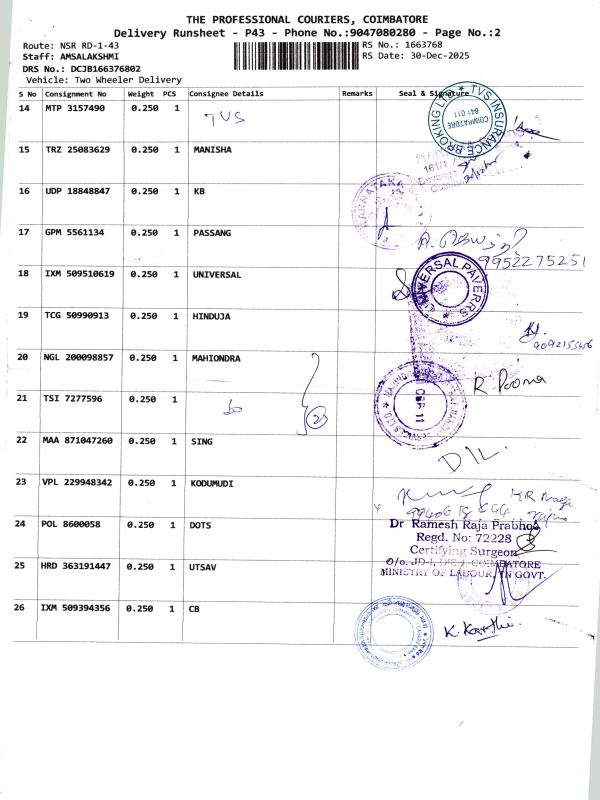 THE PROFESSIONAL COURIERS, COIMBATORE
Delivery Runsheet - P43 - Phone No.:9047080280 - Page No.:2
Route: NSR RD-1-43
RS No.: 1663768
Staff: AMSALAKSHMI
RS Date: 30-Dec-2025
DRS No.: DCJB166376802
Vehicle: Two Wheeler Delivery
S No Consignment No Weight PCS Consignee Details Remarks Seal & Signature
14 MTP 3157490 0.250 1 TVS
TVS INSURANCE BROKING
COIMBATORE
641 011
15 TRZ 25083629 0.250 1 MANISHA
16 UDP 18848847 0.250 1 KB
KARNATAKA
17 GPM 5561134 0.250 1 PASSANG
9952275251
18 IXM 509510619 0.250 1 UNIVERSAL
UNIVERSAL PAVERRS
19 TCG 50990913 0.250 1 HINDUJA
20 NGL 200098857 0.250 1 MAHIONDRA
R Poorna
21 TSI 7277596 1 do
2
22 MAA 871047260 0.250 1 SING
23 VPL 229948342 0.250 1 KODUMUDI
24 POL 8600058 0.250 1 DOTS
Dr Ramesh Raja Prabhoo
Regd. No: 72228
Certifying Surgeon
COIMBATORE
MINISTRY OF LABOUR, TN GOVT.
25 HRD 363191447 0.250 1 UTSAV
26 IXM 509394356 0.250 1 CB
K. Karthi